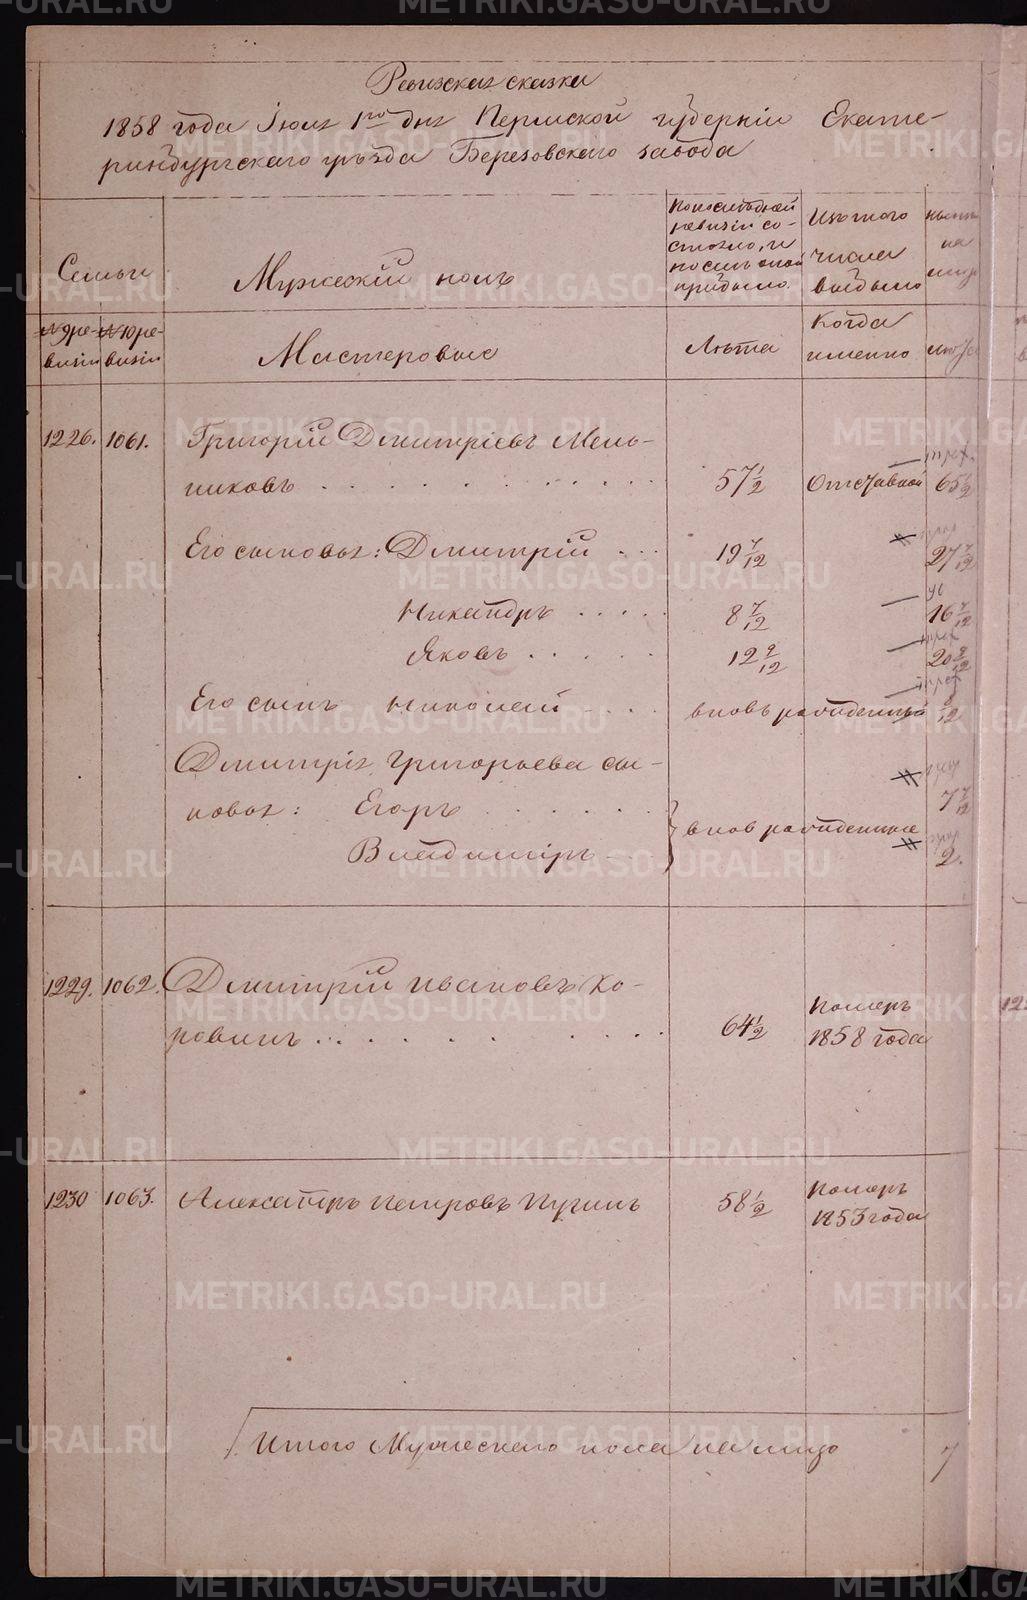 Ревизская сказка
1858 года Іюля 1го дня Пермской губерніи Екате-
ринбургскаго уѣзда Березовскаго завода
Семьи
Мужескій полъ
По последней
ревизіи со-
стояло, и
после оной
прибыло
Изъ того
числа
выбыло
ныне
на
лицо
№ 9 ре-
визіи
№ 10 ре-
визіи
Мастеровые
Лѣта
Когда
именно
лѣта
1226. 1061. Григорій Дмитріевъ Мель-
никовъ 57 1/2 Отставной 65 1/2
Его сыновья: Дмитрій 19 7/12 27 7/12
Никандръ 8 7/12 16 7/12
Яковъ 12 9/12 20 9/12
Его сынъ Николай вновь рожденный /12
Дмитрія Григорьева сы-
новья: Егоръ 7 7/12
вновь рожденные
Владиміръ 2.
1229. 1062. Дмитрій Ивановъ Ко-
ровинъ 64 1/2 Померъ
1858 года
1230 1063. Александръ Петровъ Пугинъ 58 1/2 Померъ
1853 года
Итого Мужескаго пола на лицо 7
METRIKI.GASO-URAL.RU